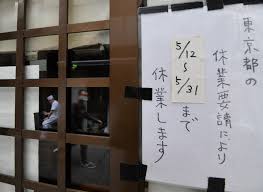 東京都の
休業要請により
5/12
〜
5/31
まで
休業します